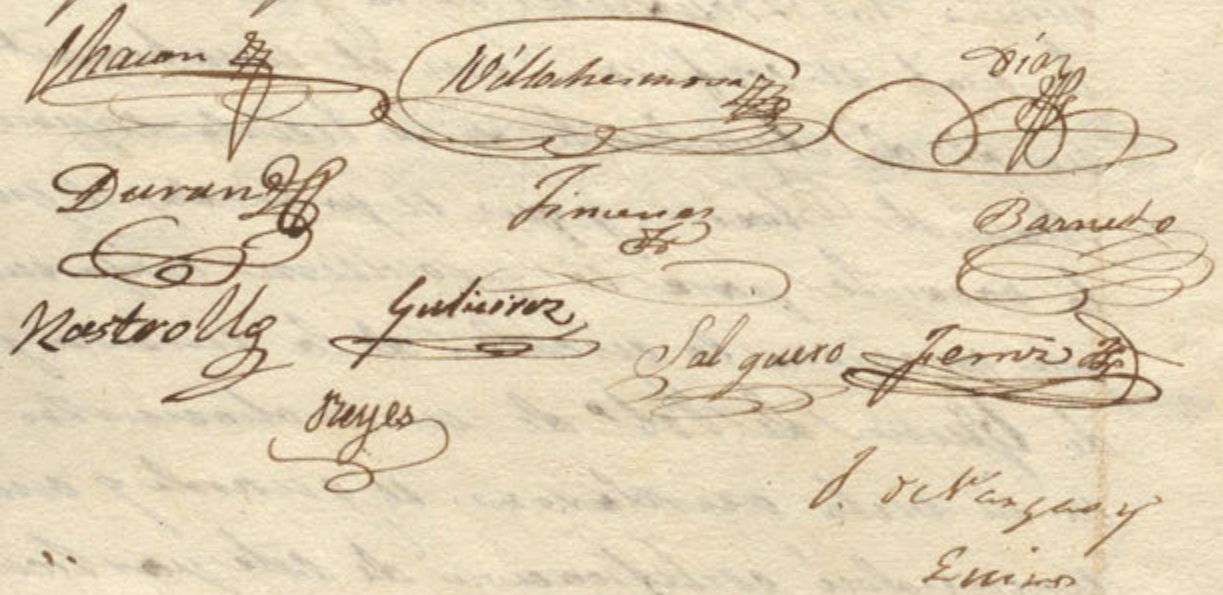 Chacon
Villahermosa
Diaz
Duran
Jimenez
Barneto
Rastrollo
Gutierrez
Salguero
Ferrnz
Reyes
J. de Vargas y